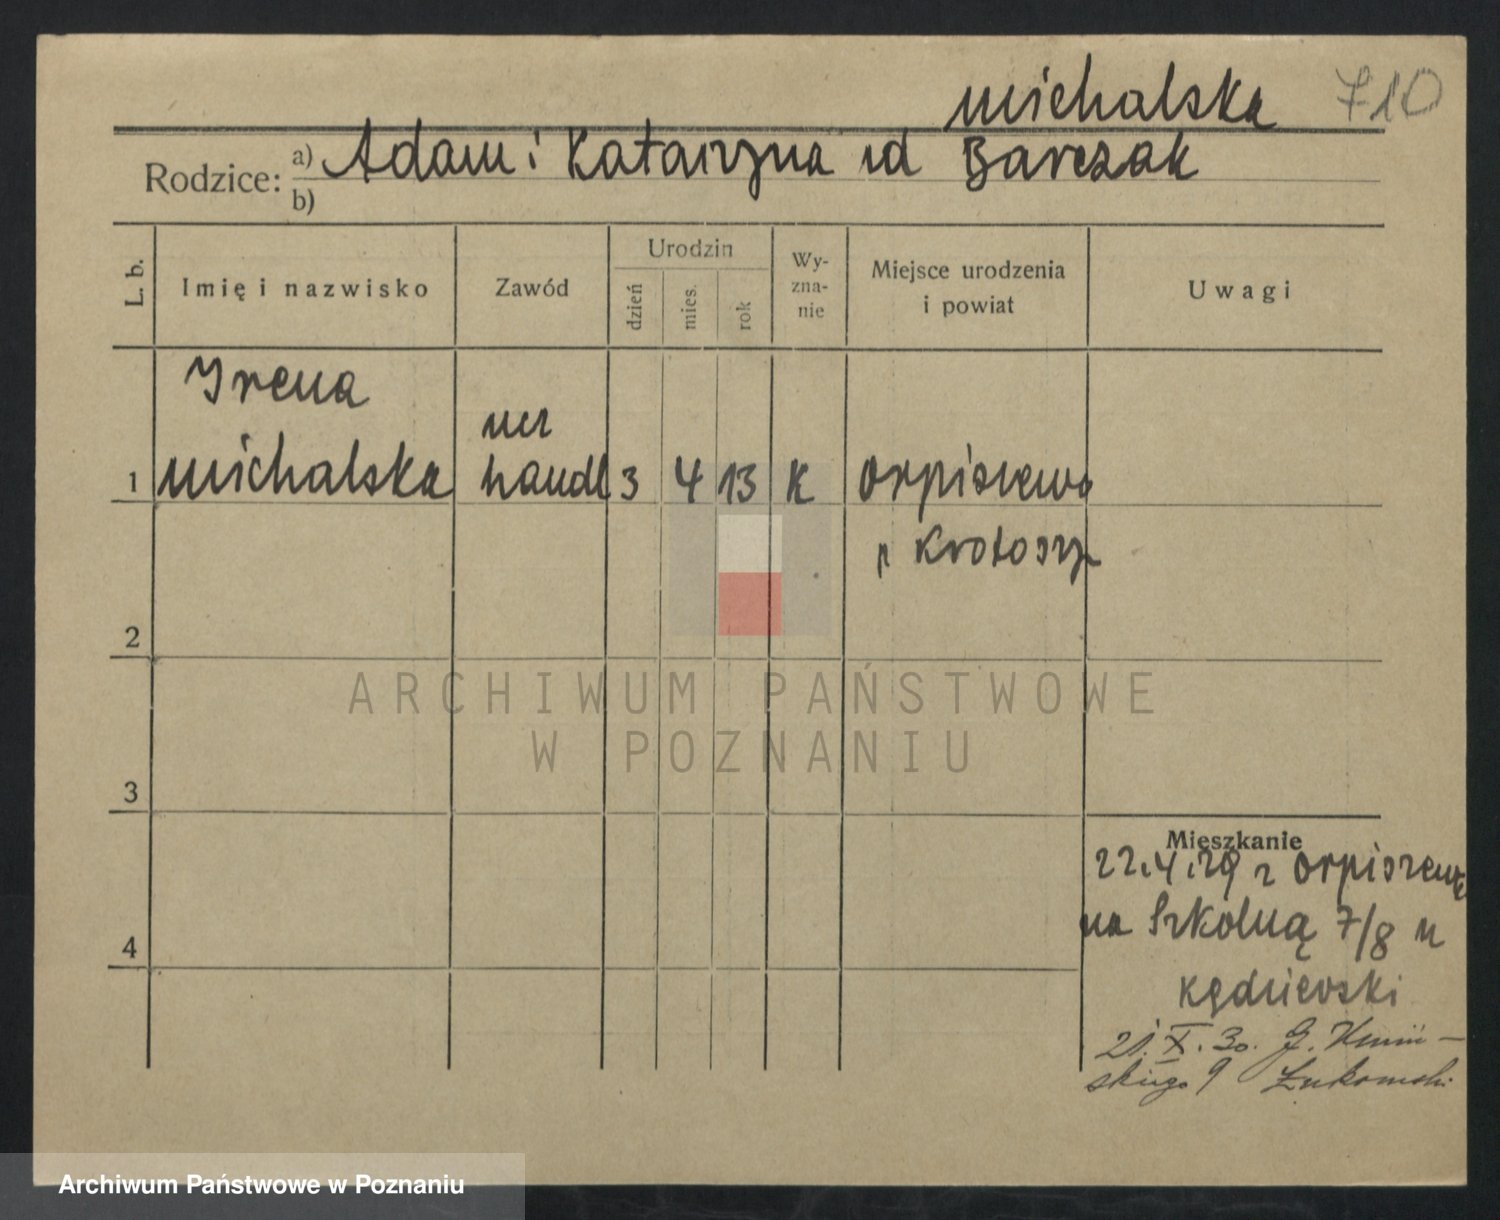 michalska 710
Rodzice: a) Adam i Katarzyna zd Barczak
b)
L. b.
Imię i nazwisko
Zawód
Urodzin
dzień
mies.
rok
Wy-
zna-
nie
Miejsce urodzenia
i powiat
Uwagi
Irena
ucz
1 michalska handl 3 4 13 K Orpiszewo
p Krotoszyn
2
ARCHIWUM PAŃSTWOWE
W POZNANIU
3
Mieszkanie
22.4.29 z Orpiszewa
na Szkolną 7/8 u
4
Kędzierski
21.X.30. G.
skiego 9 Łukomski
Archiwum Państwowe w Poznaniu